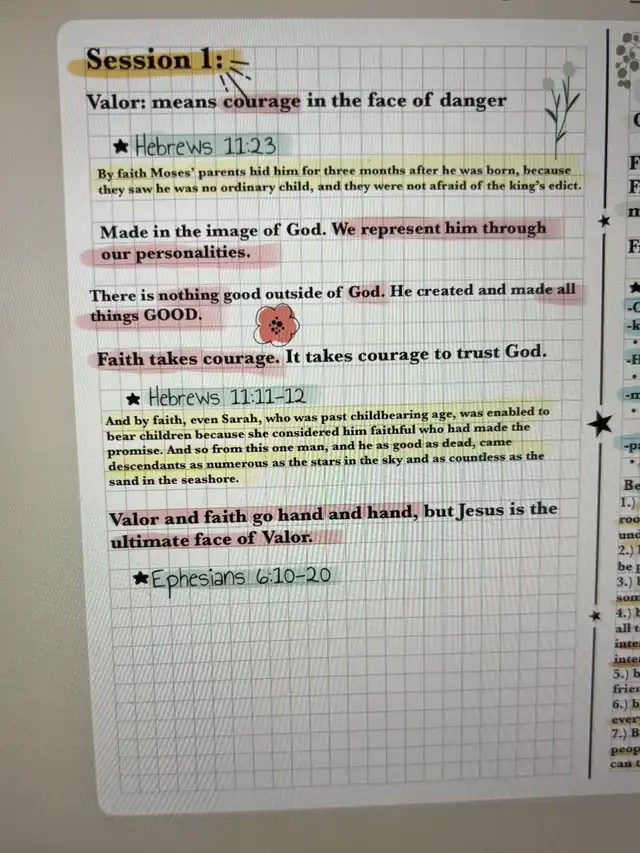 Session 1:
Valor: means courage in the face of danger
★ Hebrews 11:23
By faith Moses' parents hid him for three months after he was born, because
they saw he was no ordinary child, and they were not afraid of the king's edict.
Made in the image of God. We represent him through
our personalities.
There is nothing good outside of God. He created and made all
things GOOD.
Faith takes courage. It takes courage to trust God.
★ Hebrews 11:11-12
And by faith, even Sarah, who was past childbearing age, was enabled to
bear children because she considered him faithful who had made the
promise. And so from this one man, and he as good as dead, came
descendants as numerous as the stars in the sky and as countless as the
sand in the seashore.
Valor and faith go hand and hand, but Jesus is the
ultimate face of Valor.
★ Ephesians 6:10-20
Be
1.)
2.)
be
3.)
4.)
all
5.)
6.)
7.)
can